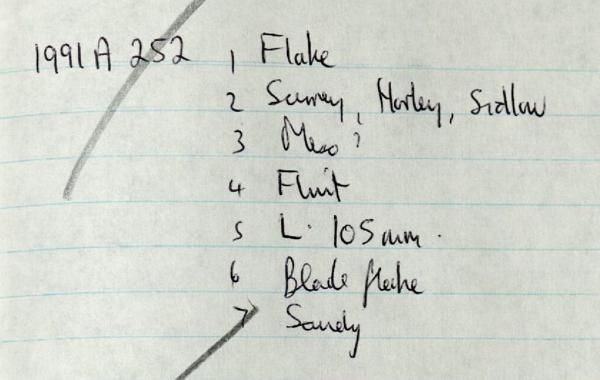 1991A 252 1 Flake
2 Surrey, Horley, Sidlow
3 Meso?
4 Flint
5 L. 105mm.
6 Blade flake
7 Sandy